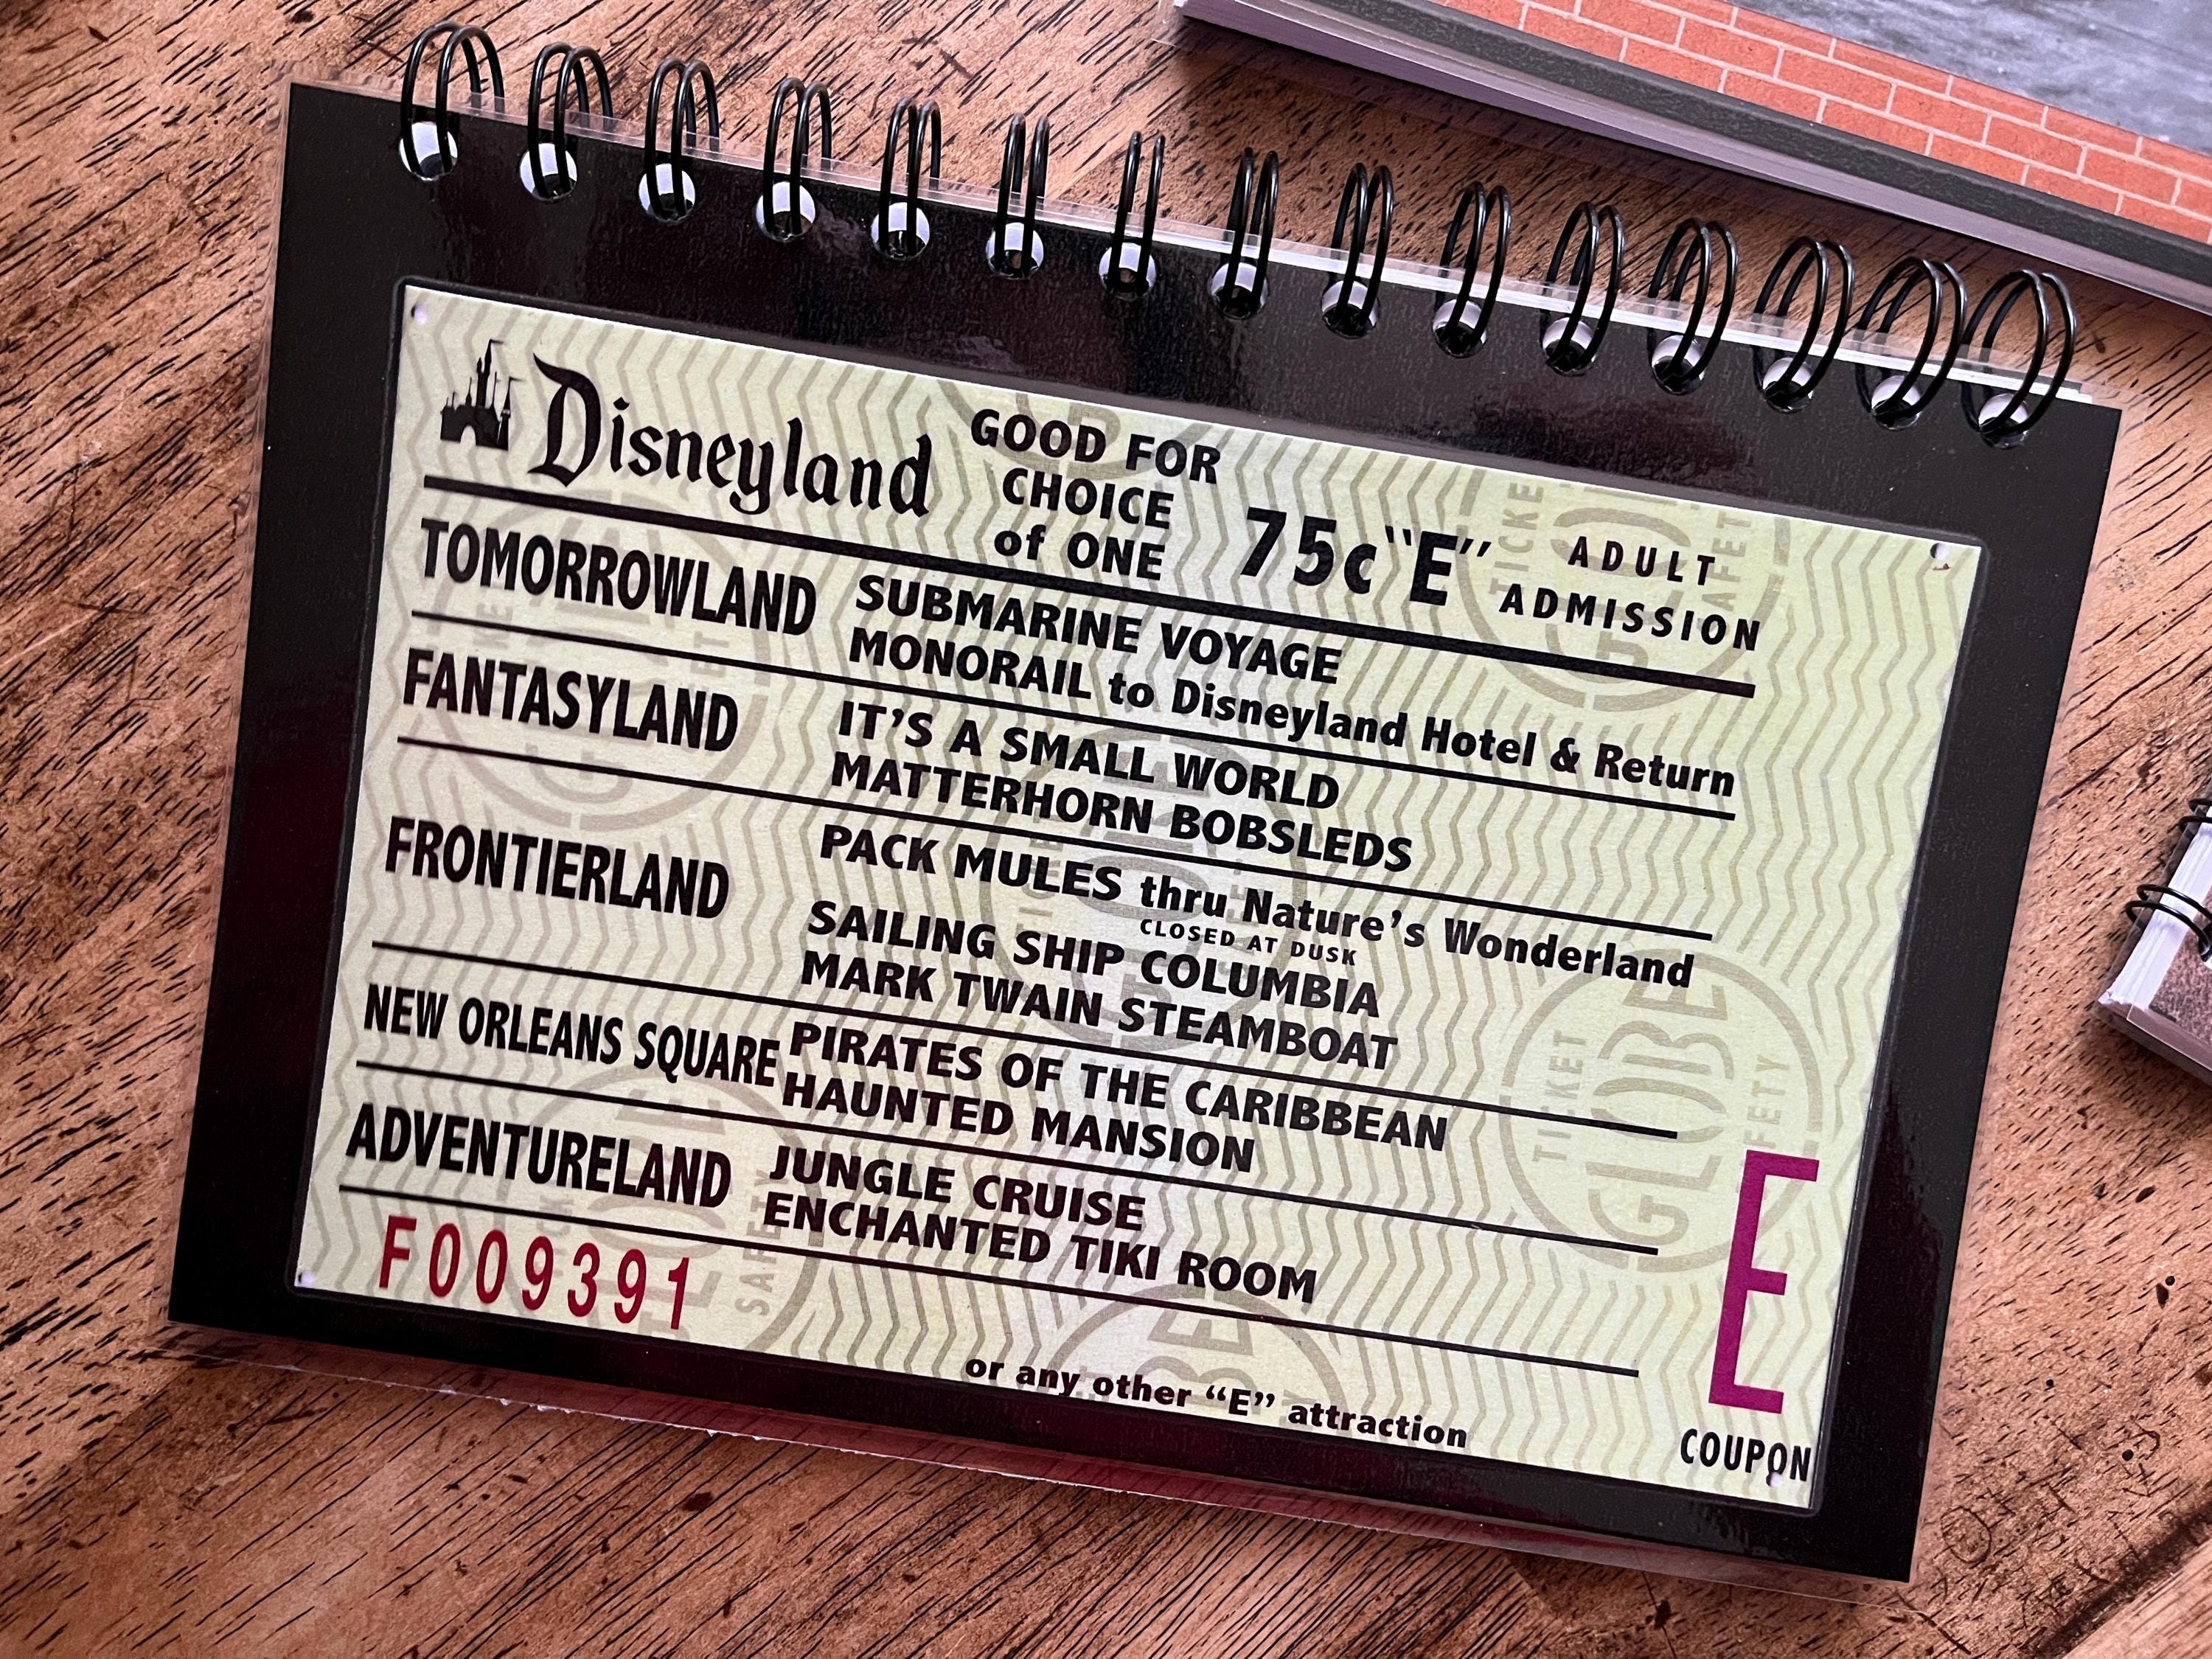 Disneyland
GOOD FOR
CHOICE
of ONE
75c "E"
ADULT
ADMISSION
TOMORROWLAND
SUBMARINE VOYAGE
MONORAIL to Disneyland Hotel & Return
FANTASYLAND
IT'S A SMALL WORLD
MATTERHORN BOBSLEDS
FRONTIERLAND
PACK MULES thru Nature's Wonderland
CLOSED AT DUSK
SAILING SHIP COLUMBIA
MARK TWAIN STEAMBOAT
NEW ORLEANS SQUARE
PIRATES OF THE CARIBBEAN
HAUNTED MANSION
ADVENTURELAND
JUNGLE CRUISE
ENCHANTED TIKI ROOM
F009391
or any other "E" attraction
E
COUPON
TICKET
GLOBE
SAFETY